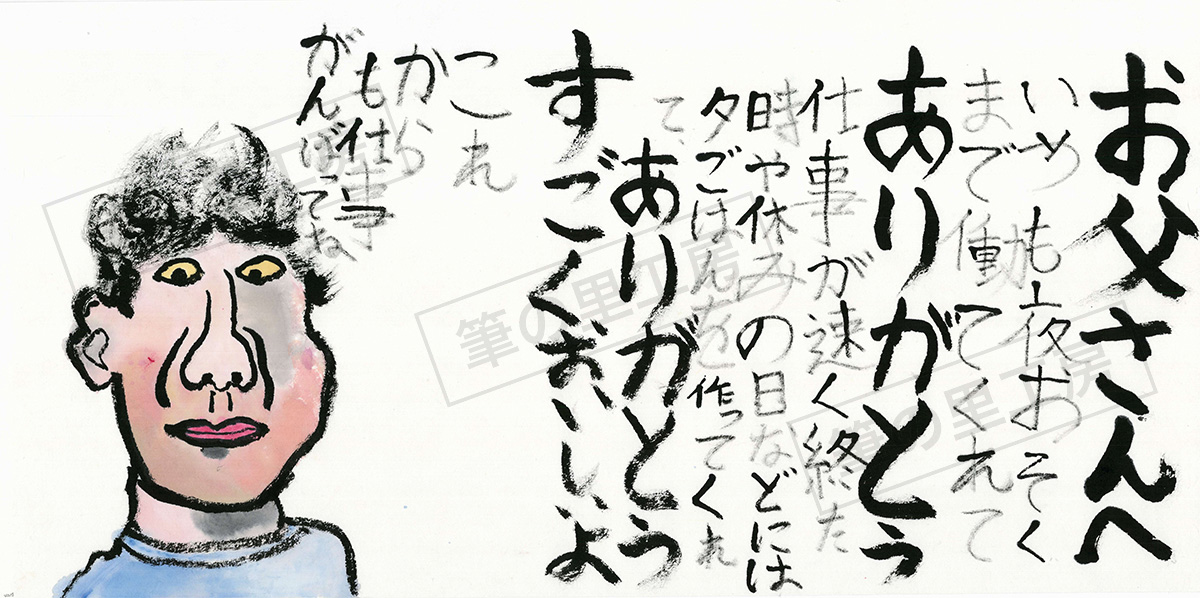 お父さんへ
いつも夜おそく
まで働てくれて
ありがとう
仕事が速く終た
時や休みの日などには
夕ごはんを作ってくれ
て、
ありがとう
すごくおいしいよ
これ
から
も仕事
がんばってね、
筆の里工房
筆の里工房
筆の里工房